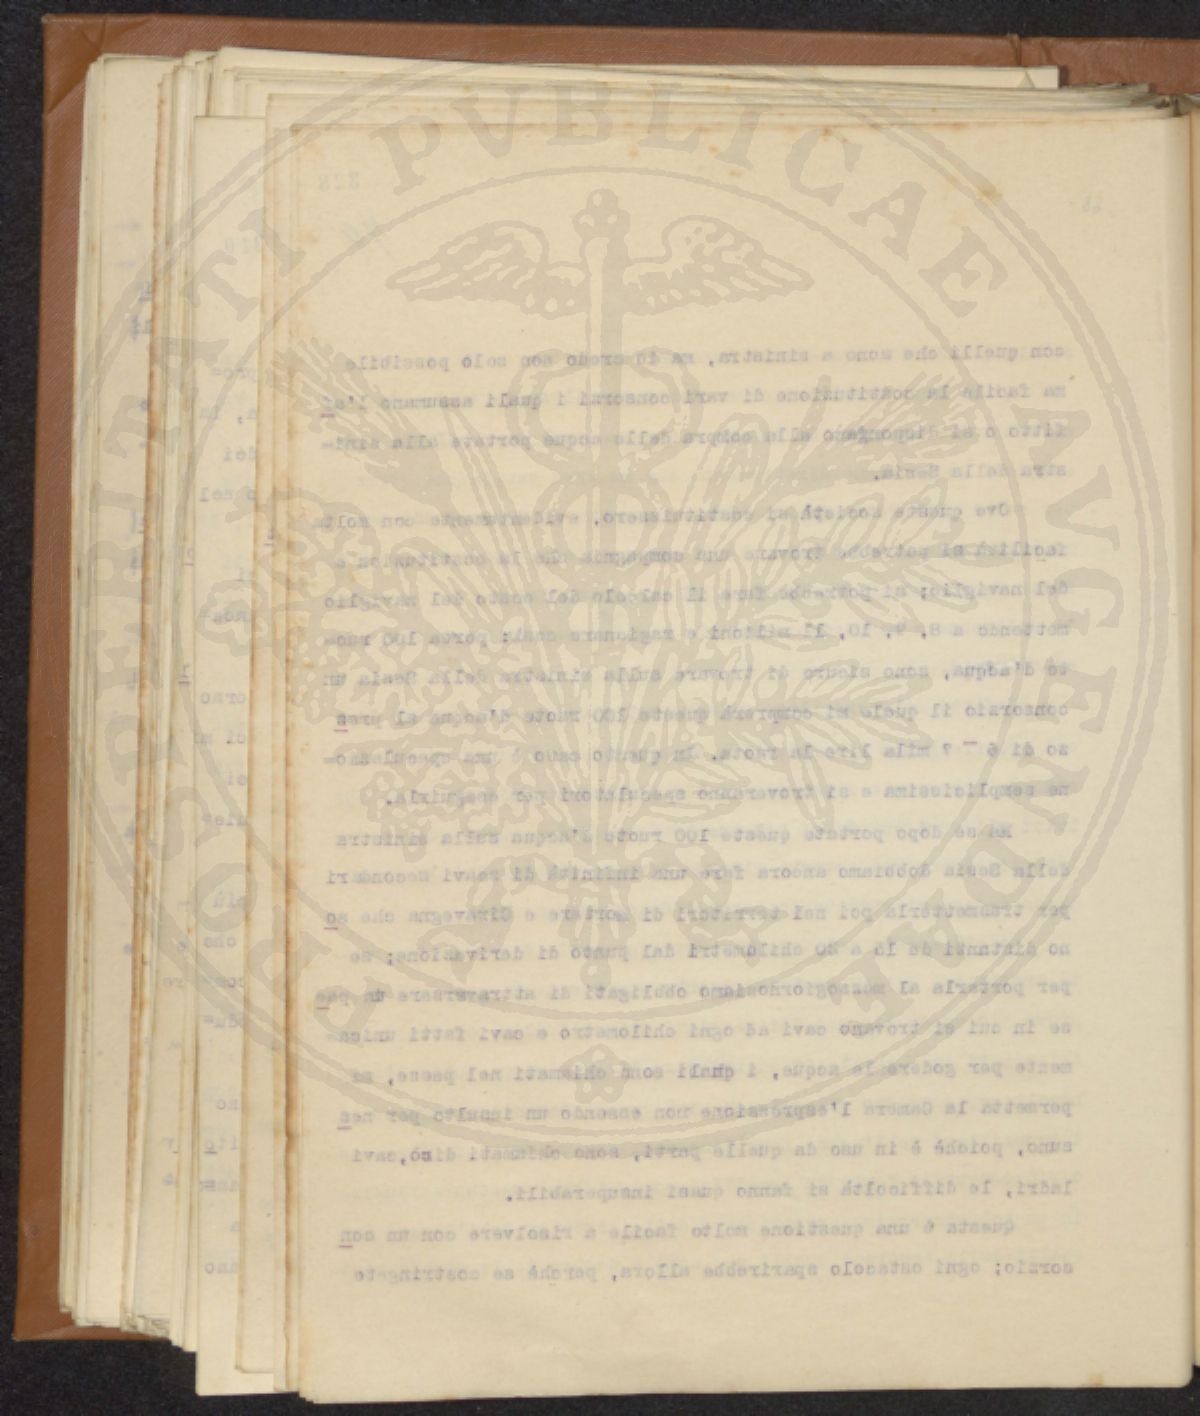 328
con quelli che sono a sinistra, ma io credo non solo possibile
ma facile la costituzione di vari consorzi i quali assumano l'af
fitto o si dispongano alla compra delle acque portate alla sini-
stra della Sesia.
Ove queste società si costituissero, evidentemente con molta
facilità si potrebbe trovare una compagnia che la costituzion e
del naviglio; si potrebbe fare il calcolo del costo del naviglio
mettendo a 8, 9, 10, 11 milioni e ragionare così: porta 100 ruo-
te d'acqua, sono sicuro di trovare sulla sinistra della Sesia un
consorzio il quale mi comprerà queste 100 ruote d'acqua al prez
zo di 6 - 7 mila lire la ruota. In questo caso è una speculazio-
ne semplicissima e si troveranno speculatori per eseguirla.
Ma se dopo portate queste 100 ruote d'acqua sulla sinistra
della Sesia dobbiamo ancora fare una infinità di scavi secondari
per trasmetterla poi nei territori di Mortara e Ciravegna che so
no distanti da 15 a 20 chilometri dal punto di derivazione; se
per portarla al mezzogiorno siamo obbligati di attraversare un pae
se in cui si trovano cavi ad ogni chilometro e cavi fatti unica-
mente per godere le acque, i quali sono chiamati nel paese, mi
permetta la Camera l'espressione non essendo un insulto per nes
suno, poichè è in uso da quelle parti, sono chiamati dicò, cavi
ladri, le difficoltà si fanno quasi insuperabili.
Questa è una questione molto facile a risolvere con un con
sorzio; ogni ostacolo sparirebbe allora, perchè se costringete
PROSPERITATI PVBLICAE AVGENDAE